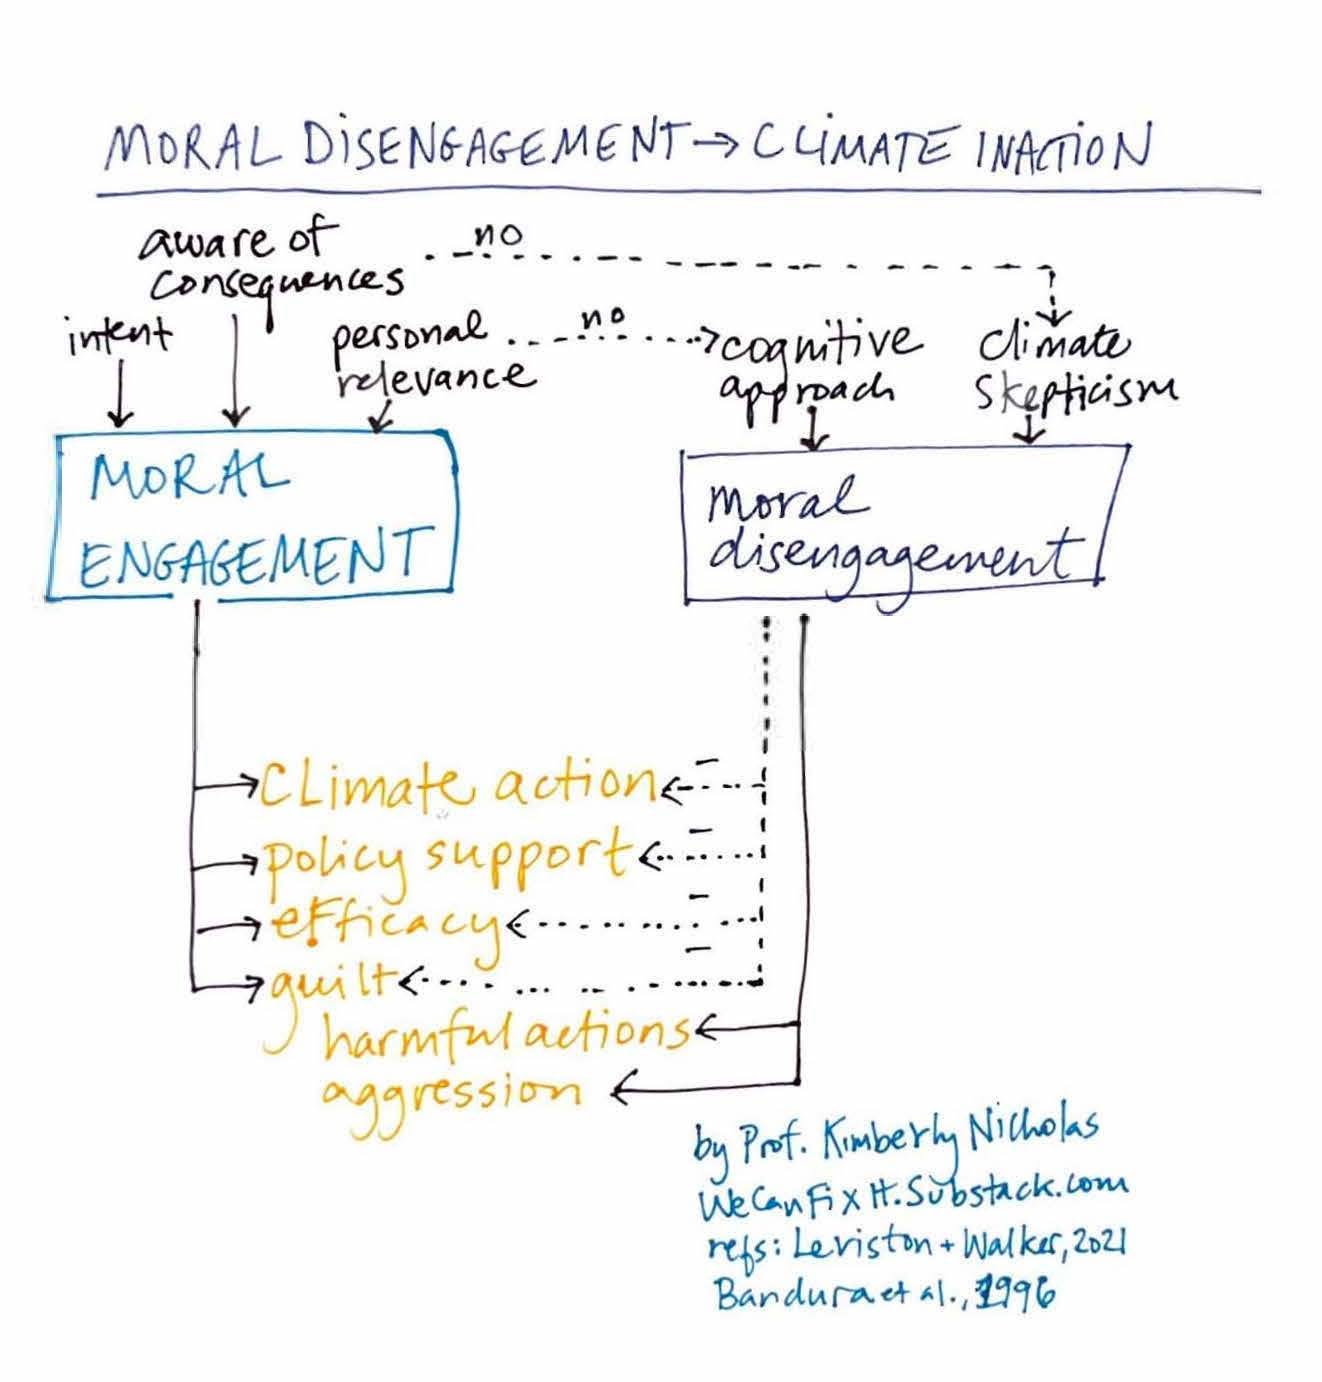 MORAL DISENGAGEMENT → CLIMATE INACTION
aware of
consequences
no
intent
personal
relevance
no
cognitive
approach
climate
skepticism
MORAL
ENGAGEMENT
moral
disengagement
CLimate action
–
policy support
–
efficacy
–
guilt
–
harmful actions
aggression
by Prof. Kimberly Nicholas
WeCanFixIt.Substack.com
refs: Leviston + Walker, 2021
Bandura et al., 1996